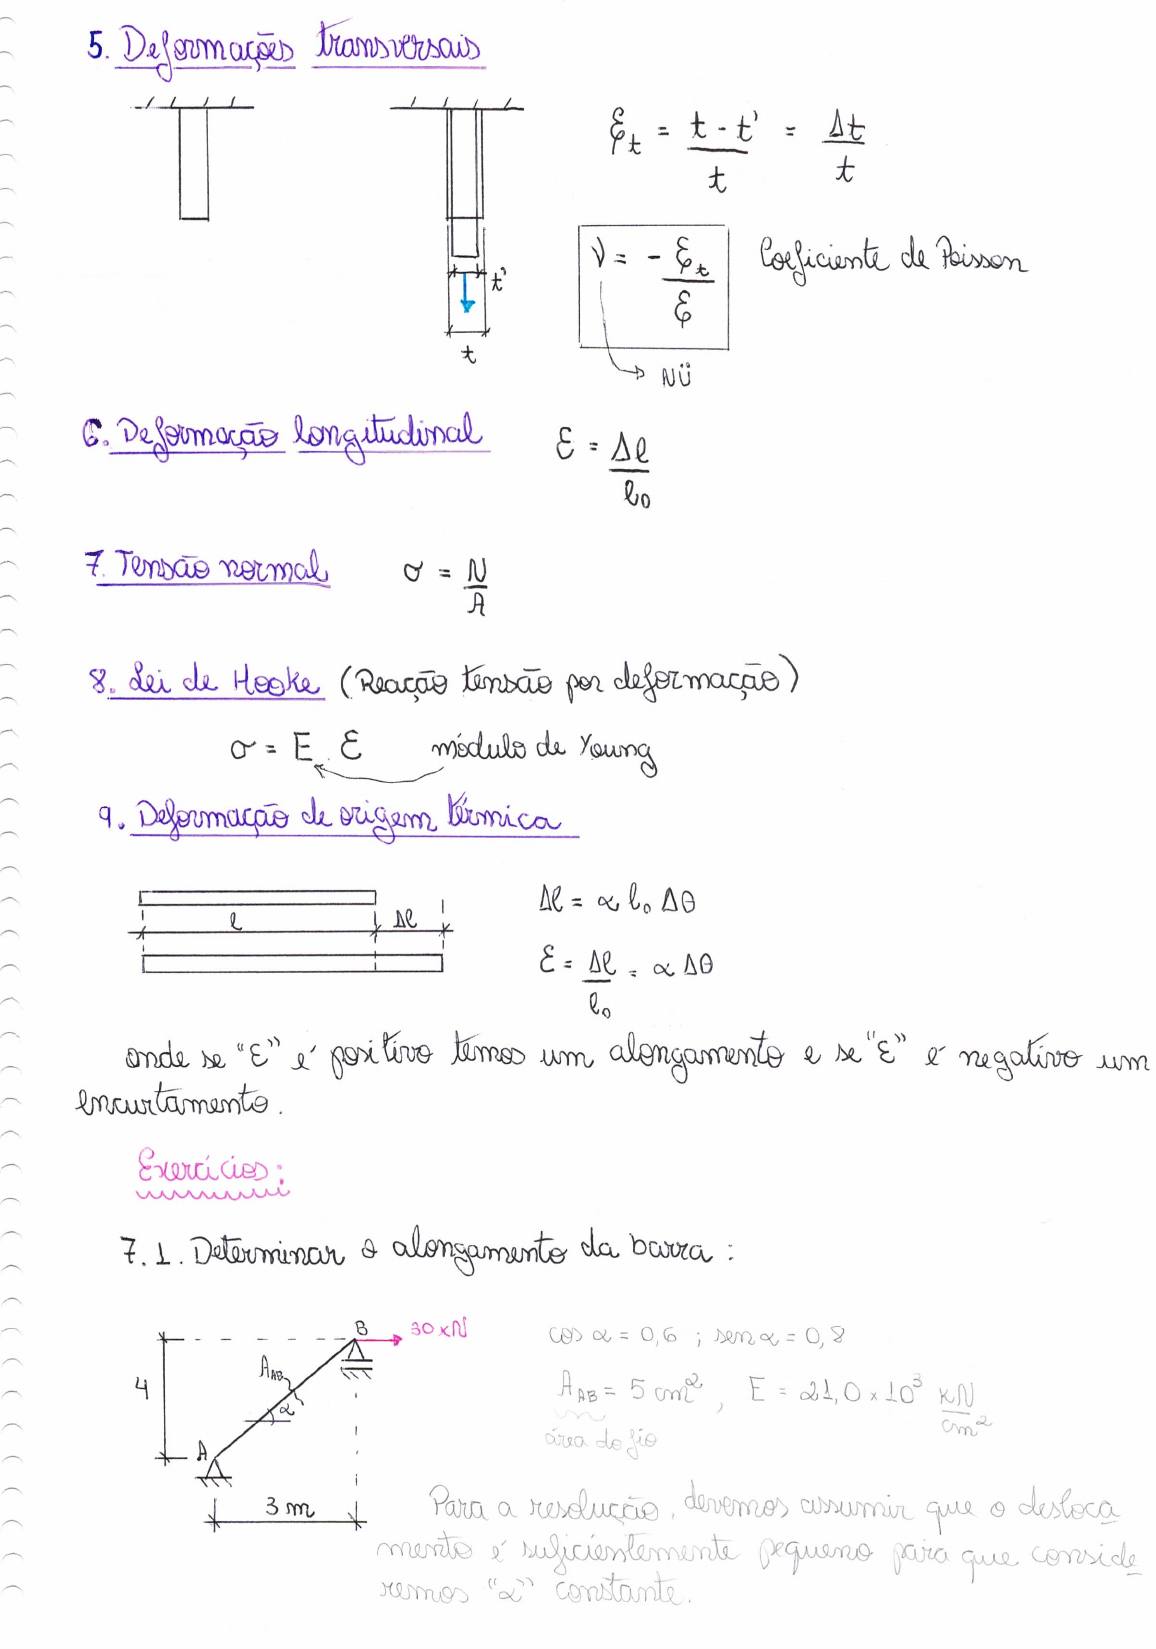 5. Deformações transversais
εt = t - t' / t = Δt / t
t'
t
ν = - εt / ε
Coeficiente de Poisson
NÜ
6. Deformação longitudinal
ε = Δl / l₀
7. Tensão normal
σ = N / A
8. Lei de Hooke (Reação tensão por deformação)
σ = E . ε módulo de Young
9. Deformação de origem térmica
l Δl
Δl = α l₀ Δθ
ε = Δl / l₀ = α Δθ
onde se "ε" é positivo temos um alongamento e se "ε" é negativo um
encurtamento.
Exercícios:
7.1. Determinar o alongamento da barra:
B 30 kN
cos α = 0,6 ; sen α = 0,8
A_AB
4
α
A_AB = 5 cm², E = 21,0 × 10³ kN / cm²
área do fio
A
3 m
Para a resolução, devemos assumir que o desloca
mento é suficientemente pequeno para que conside
remos "α" constante.